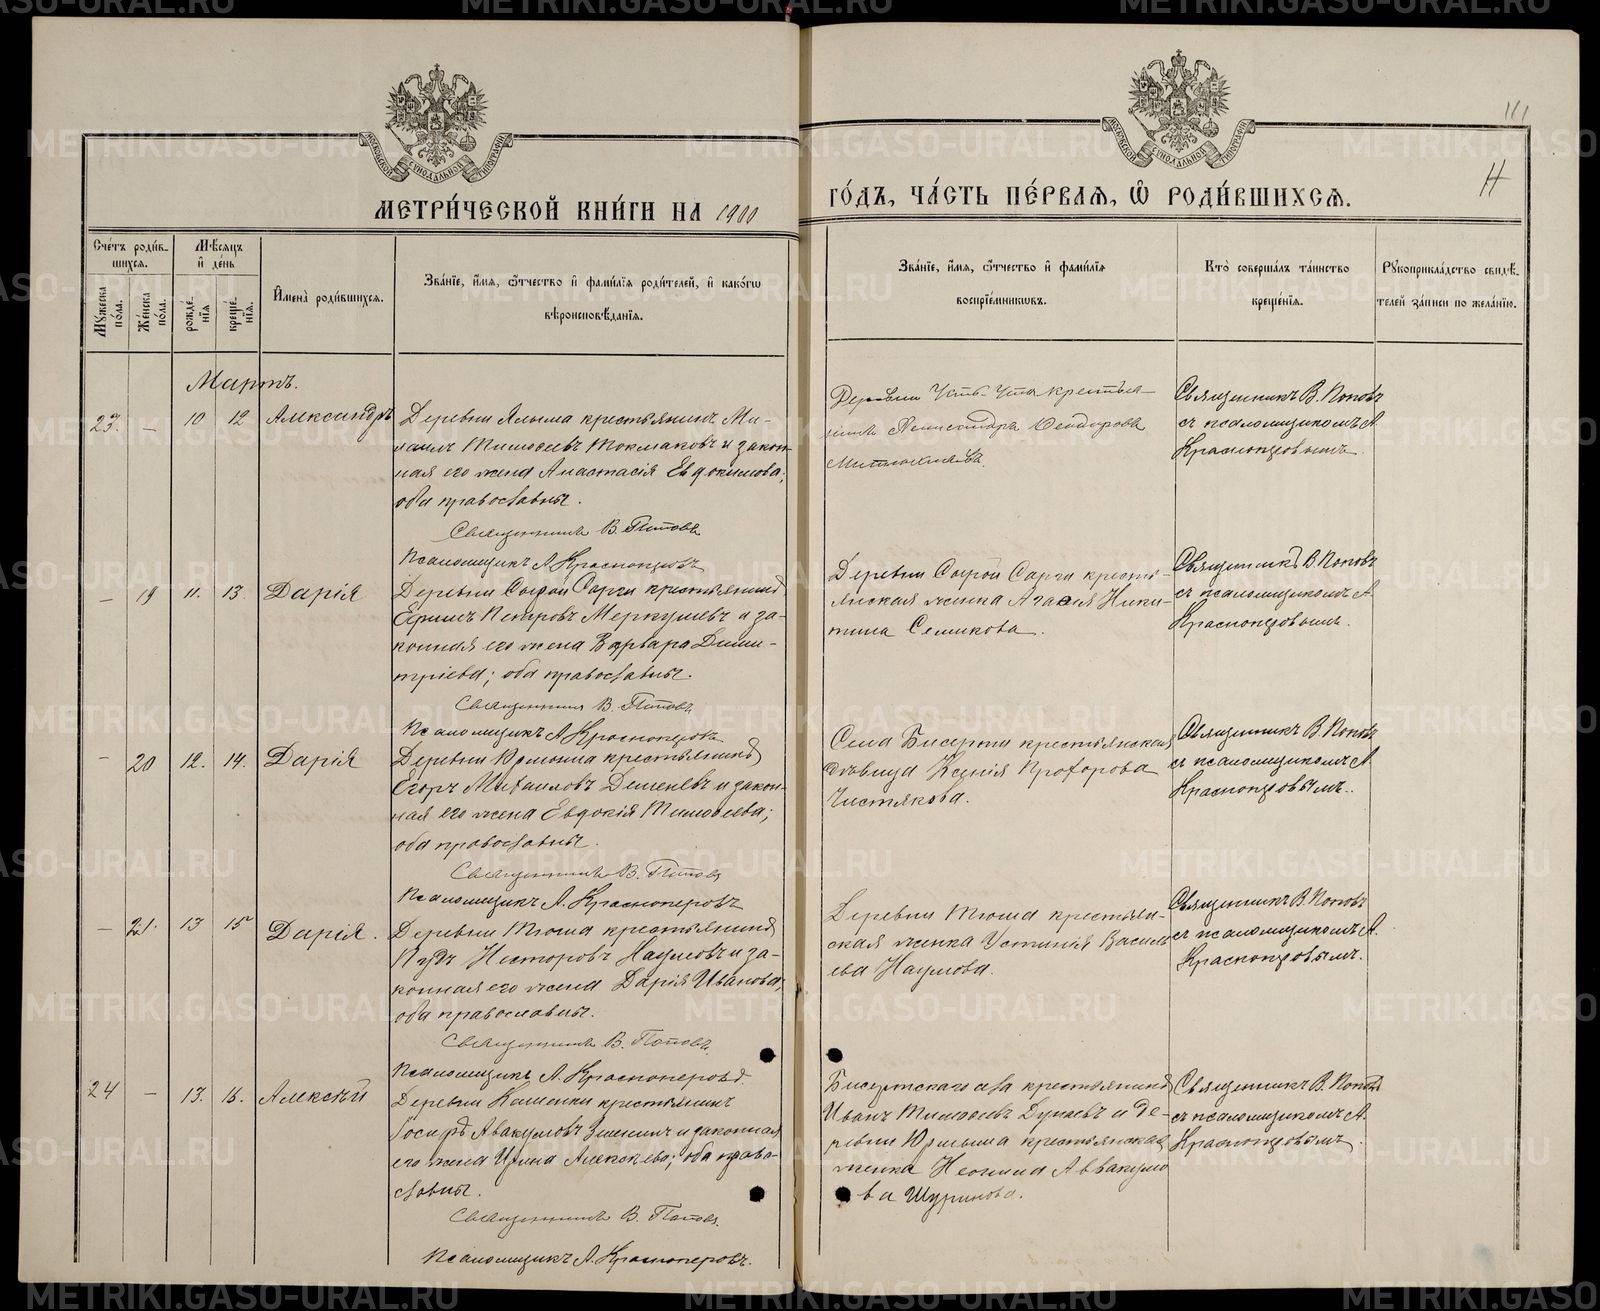 МЕТРИ́ЧЕСКОЙ КНИ́ГИ НА 1900
ГО́ДЪ, ЧА́СТЬ ПЕ́РВАЯ, Ѿ РОДИ́ВШИХСЯ.
111
Сче́тъ роди́в-
шихся.
Мѣ́сяцъ
и҆ де́нь
Мꙋ́жеска по́ла.
Же́нска по́ла.
рожде́-
нїя
креще́-
нїя.
И҆мена̀ роди́вшихся.
Зва́нїе, и҆́мя, ѻ҆́тчество и҆ фами́лїя роди́телей, и҆ како́гѡ
вѣроисповѣ́данїя.
Зва́нїе, и҆́мя, ѻ҆́тчество и҆ фами́лїя
воспрїе́мникѡвъ.
Кто̀ соверша́лъ та́инство
креще́нїя.
Рꙋкоприкла́дство свидѣ́-
телей за́писи по жела́нїю.
Мартъ.
23. – 10 12 Александръ
Деревни Ялыма крестьянинъ Ми-
хаилъ Тимоѳеевъ Токмаковъ и закон-
ная его жена Анастасія Евдокимова;
оба православные.
Священникъ В. Поповъ
Псаломщикъ А. Красноперовъ
Деревни Усть-Ута крестья-
Александра Ѳеодорова
Священникъ В. Поповъ
съ псаломщикомъ А.
Красноперовымъ.
– 19 11. 13. Дарія
Деревни Сырой Сарги крестьянинъ
Петровъ Меркушевъ и за-
конная его жена Варвара Дими-
тріева; оба православные.
Священникъ В. Поповъ
Псаломщикъ А. Красноперовъ
Деревни Сырой Сарги кресть-
янская женка Агаѳія Ники-
тина Семикова.
Священникъ В. Поповъ
съ псаломщикомъ А.
Красноперовымъ.
– 20 12. 14. Дарія
Деревни Юрмыша крестьянинъ
Егоръ Михаиловъ Деменевъ и закон-
ная его жена Евдокія Тимоѳеева;
оба православные.
Священникъ В. Поповъ
Псаломщикъ А. Красноперовъ
Села Бисерти крестьянская
дѣвица Ксенія Прохорова
Чистякова.
Священникъ В. Поповъ
съ псаломщикомъ А.
Красноперовымъ.
– 21. 13 15 Дарія.
Деревни Тюша крестьянинъ
Пудъ Несторовъ Наумовъ и за-
конная его жена Дарія Иванова;
оба православные.
Священникъ В. Поповъ
Псаломщикъ А. Красноперовъ.
Деревни Тюша крестьян-
ская женка Устинія Василь-
ева Наумова.
Священникъ В. Поповъ
съ псаломщикомъ А.
Красноперовымъ.
24 – 13. 16. Алексѣй
Деревни Каменки крестьянинъ
Авакумовъ и законная
его жена Ирина Алексѣева; оба право-
славные.
Священникъ В. Поповъ.
Псаломщикъ А. Красноперовъ.
Бисертскаго села крестьянинъ
Иванъ Тимоѳеевъ Дунаевъ и де-
ревни Юрмыша крестьянская
женка Неонила Аввакумо
ва Шуринова.
Священникъ В. Поповъ
съ псаломщикомъ А.
Красноперовымъ.
METRIKI.GASO-URAL.RU